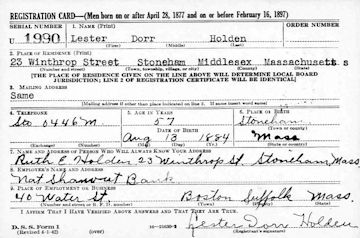 REGISTRATION CARD—(Men born on or after April 28, 1877 and on or before February 16, 1897)
SERIAL NUMBER 1. NAME (Print) ORDER NUMBER
U 1990 Lester Dorr Holden
(First) (Middle) (Last)
2. PLACE OF RESIDENCE (Print)
23 Winthrop Street Stoneham Middlesex Massachusetts
(Number and street) (Town, township, village, or city) (County) (State)
[THE PLACE OF RESIDENCE GIVEN ON THE LINE ABOVE WILL DETERMINE LOCAL BOARD
JURISDICTION; LINE 2 OF REGISTRATION CERTIFICATE WILL BE IDENTICAL]
3. MAILING ADDRESS
Same
[Mailing address if other than place indicated on line 2. If same insert word same]
4. TELEPHONE 5. AGE IN YEARS 6. PLACE OF BIRTH
Sto 5446M 57 Stoneham
DATE OF BIRTH (Town or county)
Aug 13 1884 Mass
(Exchange) (Number) (Mo.) (Day) (Yr.) (State or country)
7. NAME AND ADDRESS OF PERSON WHO WILL ALWAYS KNOW YOUR ADDRESS
Ruth E Holden 23 Winthrop St. Stoneham Mass
8. EMPLOYER'S NAME AND ADDRESS
Nat Shawmut Bank
9. PLACE OF EMPLOYMENT OR BUSINESS
40 Water St Boston Suffolk Mass.
(Number and street or R. F. D. number) (Town) (County) (State)
I AFFIRM THAT I HAVE VERIFIED ABOVE ANSWERS AND THAT THEY ARE TRUE.
D. S. S. Form 1
(Revised 4-1-42) (over)
Lester Dorr Holden
(Registrant's signature)